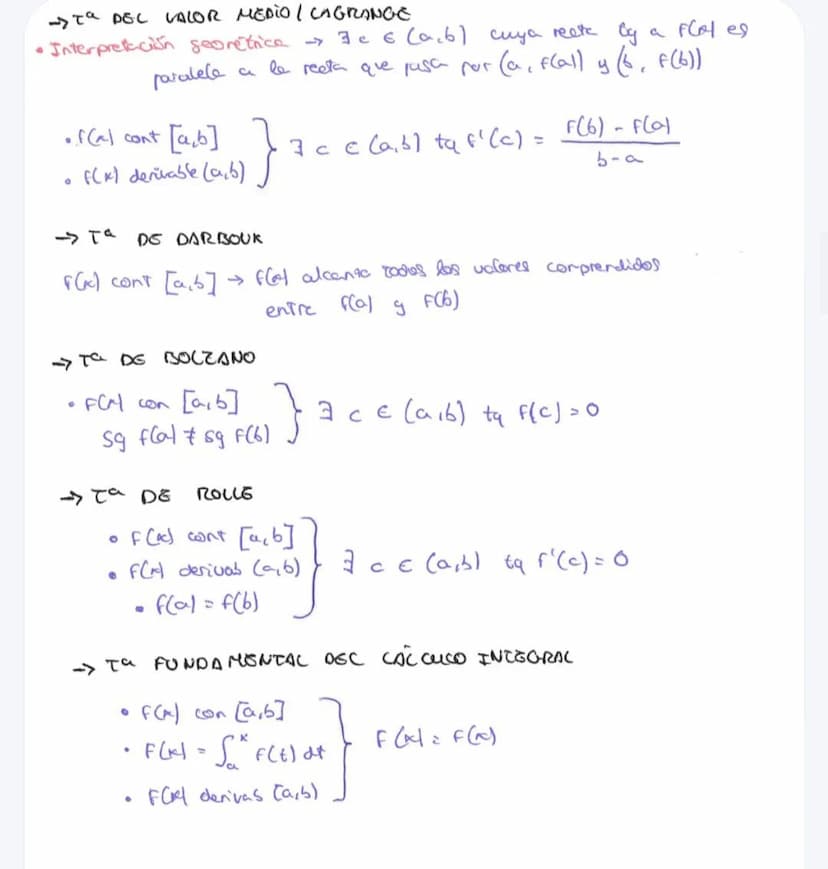 → Tª DEL VALOR MEDIO / LAGRANGE
• Interpretación geométrica → ∃ c ∈ (a,b) cuya recta tg a f(x) es
paralela a la recta que pasa por (a, f(a)) y (b, f(b))
• f(x) cont [a,b]
• f(x) derivable (a,b)
} ∃ c ∈ (a,b) tq f'(c) = (f(b) - f(a)) / (b-a)
→ Tª DE DARBOUX
f(x) cont [a,b] → f(x) alcanza todos los valores comprendidos
entre f(a) y f(b)
→ Tª DE BOLZANO
• f(x) con [a,b]
sg f(a) ≠ sg f(b)
} ∃ c ∈ (a,b) tq f(c) = 0
→ Tª DE ROLLE
• f(x) cont [a,b]
• f(x) derivab (a,b)
• f(a) = f(b)
} ∃ c ∈ (a,b) tq f'(c) = 0
→ Tª FUNDAMENTAL DEL CÁLCULO INTEGRAL
• f(x) con [a,b]
• F(x) = ∫ₐˣ f(t) dt
• F(x) derivas [a,b)
} F(x) = f(x)